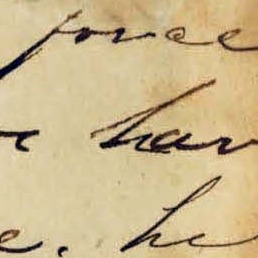 force
hav
e. he